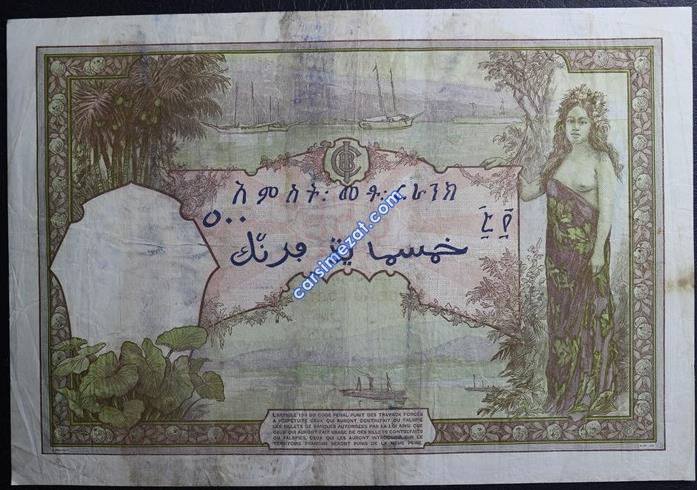 አምስት፡መቶ፡ፍራንክ
٥٠٠
፭፻
خمسماية فرنك
carsimezat.com
L'ARTICLE 139 DU CODE PENAL PUNIT DES TRAVAUX FORCÉS
A PERPÉTUITÉ CEUX QUI AURONT CONTREFAIT OU FALSIFIÉ
LES BILLETS DE BANQUES AUTORISÉES PAR LA LOI AINSI QUE
CEUX QUI AURONT FAIT USAGE DE CES BILLETS CONTREFAITS
OU FALSIFIÉS. CEUX QUI LES AURONT INTRODUITS SUR LE
TERRITOIRE FRANÇAIS SERONT PUNIS DE LA MÊME PEINE